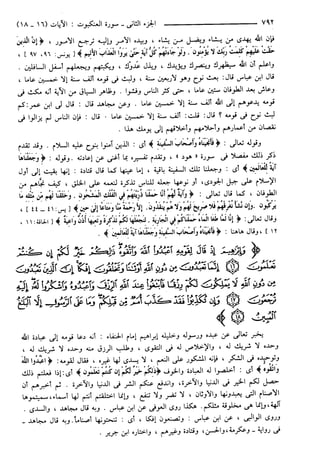 ٧٩٢ الجزء الثاني - سورة العنكبوت : الآيات (١٦ - ١٨)
فإن الله يهدي من يشاء ويضل مـن يشاء ، وبيده الأمر وإليه ترجع الأمـور ، ﴿ إِنَّ الَّذِينَ
حَقَّتْ عَلَيْهِمْ كَلِمَتُ رَبِّكَ لَا يُؤْمِنُونَ . وَلَوْ جَاءَتْهُمْ كُلُّ آيَةٍ حَتَّىٰ يَرَوُا الْعَذَابَ الْأَلِيمَ ﴾ [ يونس : ٩٦، ٩٧ ] ،
واعلم أن الله سيظهرك وينصرك ويؤيدك ، ويذل عدوك ، ويكبتهم ويجعلهم أسفل السافلين .
قال ابن عباس قال : بعث نوح وهو لأربعين سنة ، ولبث في قومه ألف سنة إلا خمسين عاما ،
وعاش بعد الطوفان ستين عاما ، حتى كثر الناس وفشوا . وظاهر السياق من الآية أنه مكث في
قومه يدعوهم إلى الله ألف سنة إلا خمسين عاما . وعن مجاهد قال : قال لى ابن عمر : كم
لبث نوح في قومه ؟ قال : قلت : ألف سنة إلا خمسين عاما . قال : فإن الناس لم يزالوا في
نقصان من أعمارهم وأحلامهم وأخلاقهم إلى يومك هذا .
وقوله تعالى : ﴿ فَأَنجَيْنَاهُ وَأَصْحَابَ السَّفِينَةِ ﴾ أي : الذين آمنوا بنوح عليه السلام . وقد تقدم
ذكر ذلك مفصلا فى سورة « هود » ، وتقدم تفسيره بما أغنى عن إعادته . وقوله : ﴿ وَجَعَلْنَاهَا
آيَةً لِّلْعَالَمِينَ ﴾ أي : وجعلنا تلك السفينة باقية ، إما عينها كما قال قتادة : إنها بقيت إلى أول
الإسلام على جبل الجودي، أو نوعها جعله للناس تذكرة لنعمه على الخلق ، كيف نجاهم من
الطوفان ، كما قال تعالى : ﴿ وَآيَةٌ لَّهُمْ أَنَّا حَمَلْنَا ذُرِّيَّتَهُمْ فِي الْفُلْكِ الْمَشْحُونِ . وَخَلَقْنَا لَهُم مِّن مِّثْلِهِ مَا
يَرْكَبُونَ . وَإِن نَّشَأْ نُغْرِقْهُمْ فَلَا صَرِيخَ لَهُمْ وَلَا هُمْ يُنقَذُونَ . إِلَّا رَحْمَةً مِّنَّا وَمَتَاعًا إِلَىٰ حِينٍ ﴾ [ يس : ٤١ - ٤٤ ] ،
وقال تعالى : ﴿ إِنَّا لَمَّا طَغَا الْمَاءُ حَمَلْنَاكُمْ فِي الْجَارِيَةِ . لِنَجْعَلَهَا لَكُمْ تَذْكِرَةً وَتَعِيَهَا أُذُنٌ وَاعِيَةٌ ﴾ [ الحاقة : ١١،
١٢ ] ، وقال هاهنا : ﴿ فَأَنجَيْنَاهُ وَأَصْحَابَ السَّفِينَةِ وَجَعَلْنَاهَا آيَةً لِّلْعَالَمِينَ ﴾ .
وَإِبْرَاهِيمَ إِذْ قَالَ لِقَوْمِهِ اعْبُدُوا اللَّهَ وَاتَّقُوهُ ذَٰلِكُمْ خَيْرٌ لَّكُمْ إِن كُنتُمْ تَعْلَمُونَ
إِنَّمَا تَعْبُدُونَ مِن دُونِ اللَّهِ أَوْثَانًا وَتَخْلُقُونَ إِفْكًا إِنَّ الَّذِينَ تَعْبُدُونَ مِن دُونِ اللَّهِ
لَا يَمْلِكُونَ لَكُمْ رِزْقًا فَابْتَغُوا عِندَ اللَّهِ الرِّزْقَ وَاعْبُدُوهُ وَاشْكُرُوا لَهُ إِلَيْهِ تُرْجَعُونَ
وَإِن تُكَذِّبُوا فَقَدْ كَذَّبَ أُمَمٌ مِّن قَبْلِكُمْ وَمَا عَلَى الرَّسُولِ إِلَّا الْبَلَاغُ الْمُبِينُ
يخبر تعالى عن عبده ورسوله وخليله إبراهيم إمام الحنفاء : أنه دعا قومه إلى عبادة الله
وحده لا شريك له ، والإخلاص له فى التقوى ، وطلب الرزق منه وحده لا شريك له ،
وتوحيده فى الشكر ، فإنه المشكور على النعم ، لا يسدي لها غيره ، فقال لقومه : ﴿ اعْبُدُوا اللَّهَ
وَاتَّقُوهُ ﴾ أي : أخلصوا له العبادة والخوف ﴿ ذَٰلِكُمْ خَيْرٌ لَّكُمْ إِن كُنتُمْ تَعْلَمُونَ ﴾ أي : إذا فعلتم ذلك
حصل لكم الخير في الدنيا والآخرة، واندفع عنكم الشر فى الدنيا والآخرة . ثم أخبرهم أن
الأصنام التى يعبدونها والأوثان ، لا تضر ولا تنفع ، وإنما اختلقتم أنتم لها أسماء، سميتموها
آلهة، وإنما هى مخلوقة مثلكم. هكذا روى العوفى عن ابن عباس . وبه قال مجاهد ، والسدى .
وروى الوالبى ، عن ابن عباس : وتصنعون إفكا ، أى : تنحتونها أصناماً. وبه قال مجاهد -
فى رواية - وعكرمة، والحسن، وقتادة وغيرهم ، واختاره ابن جرير .